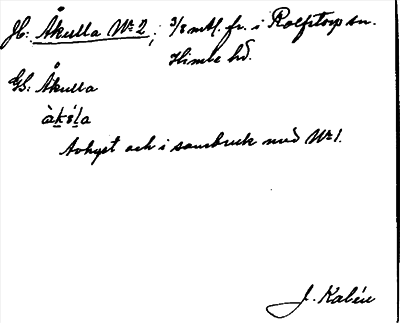 Jb: Åkulla Nr 2, 3/8 mtl. fr. i Rolfstorp sn.
Himle hd.
GS: Åkulla
àkúla
Avhyst och i sambruk med Nr 1.
J. Kalén